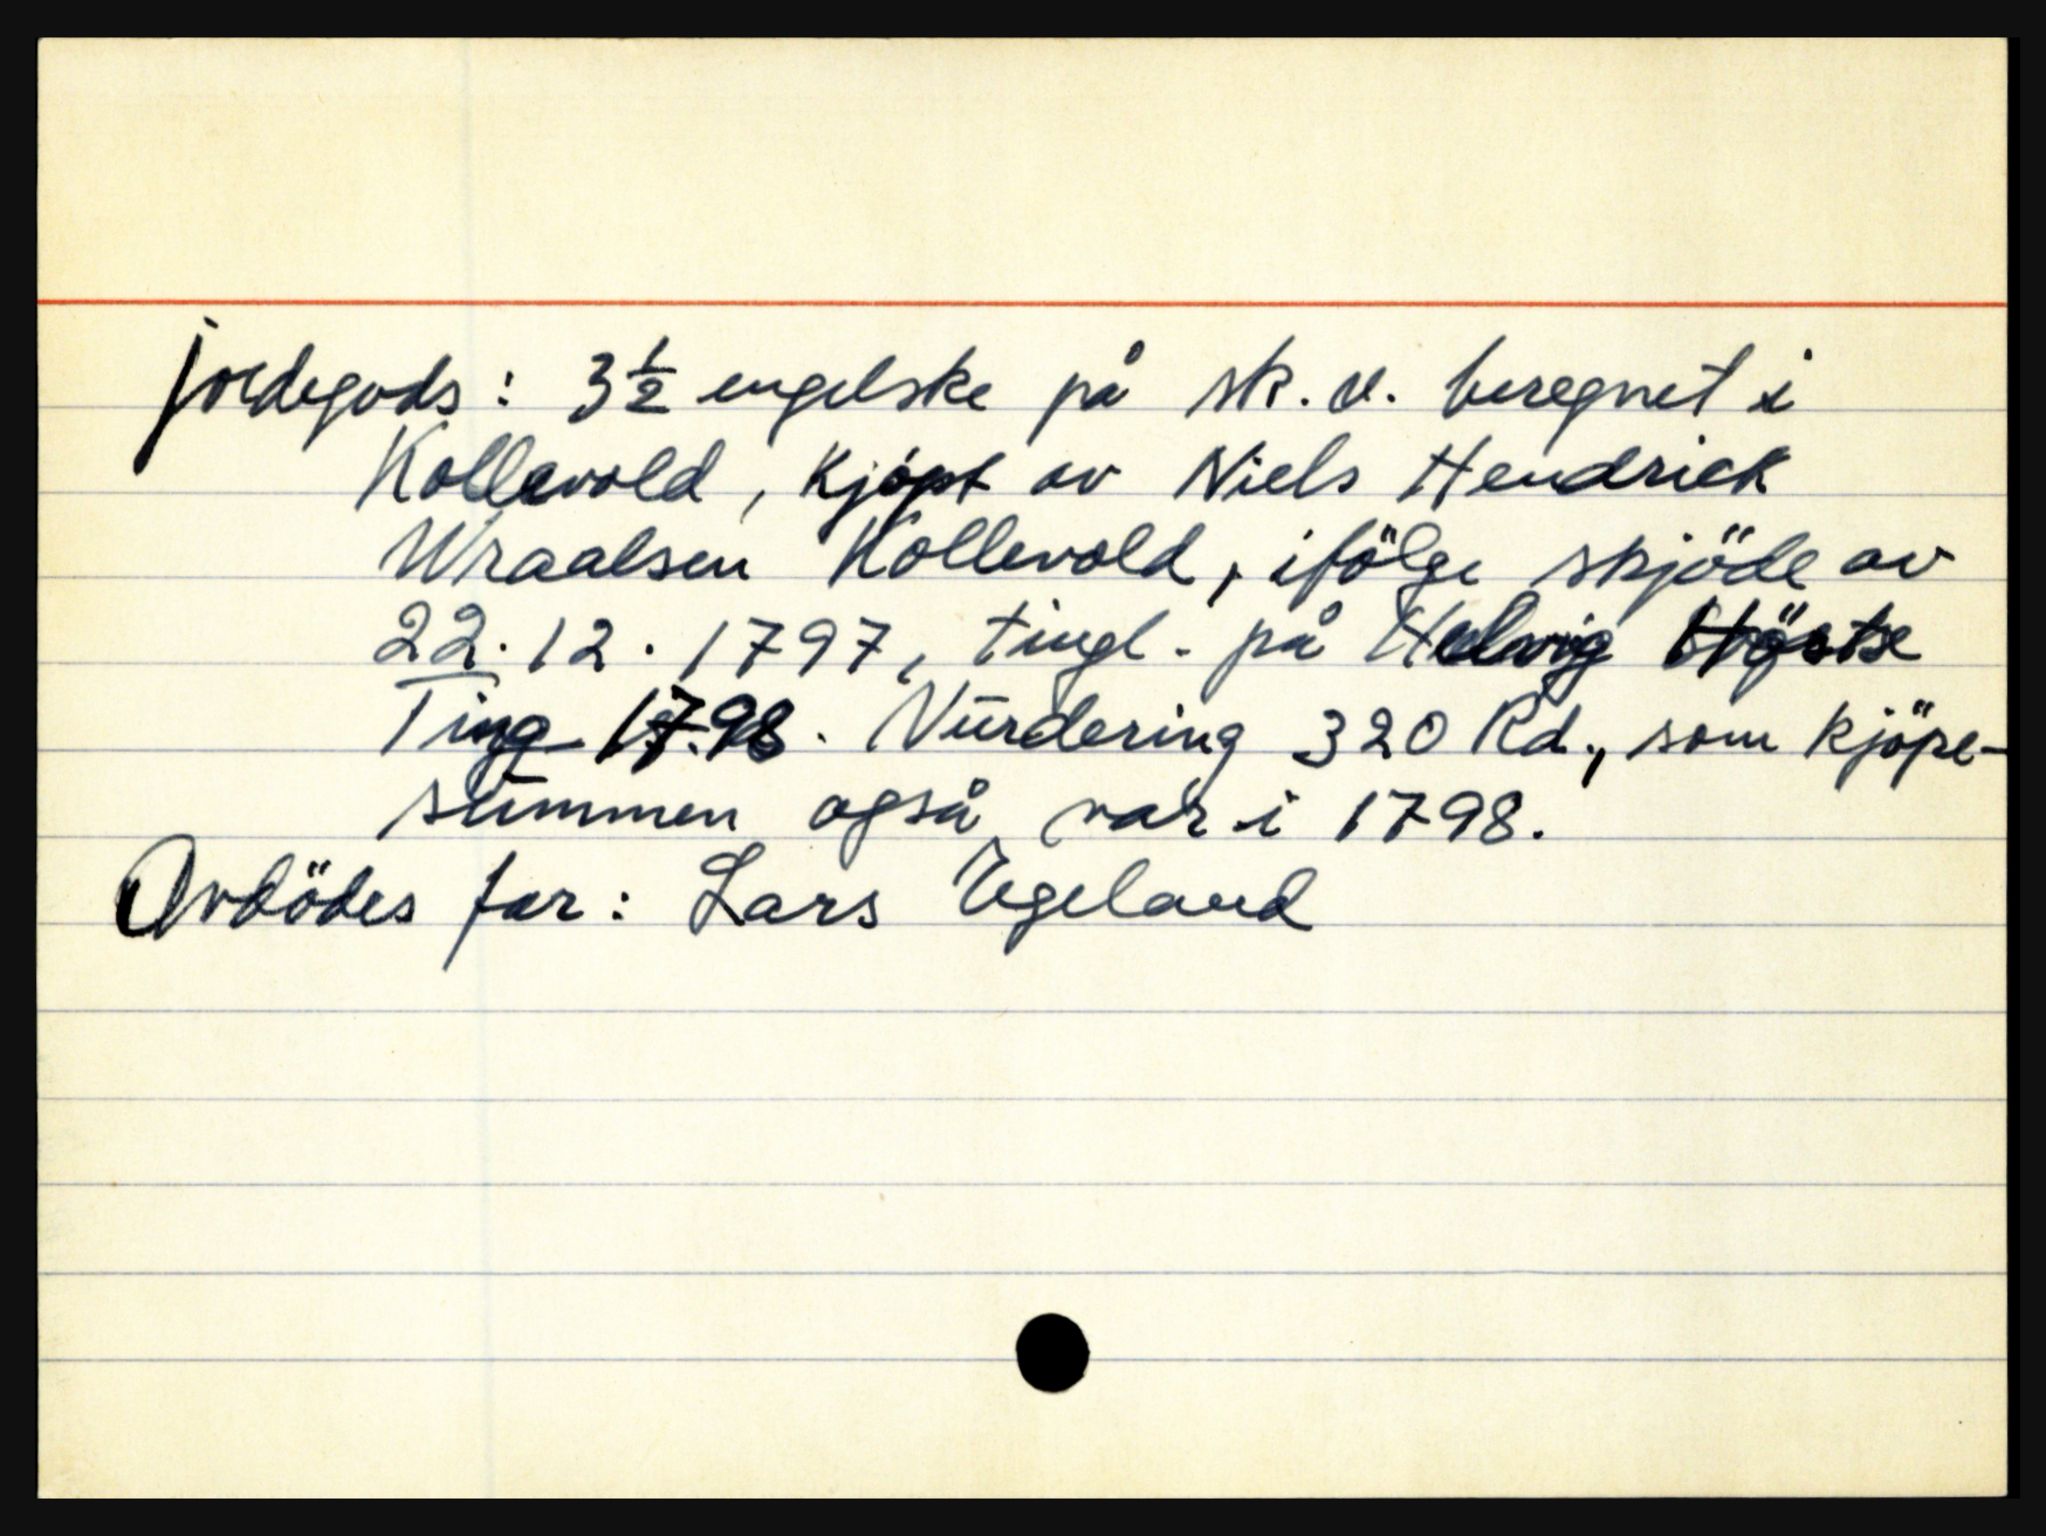 jordegods: 3 1/2 engelske på sk. v. beregnet i
Kollevold, kjöpt av Niels Hendrick
Wraalsen Kollevold, ifölge skjöde av
22. 12. 1797, tingl. på Helvig Höste
Ting 1798. Vurdering 320 Rd., som kjöpe-
summen også var i 1798.
Avdödes far: Lars Egeland